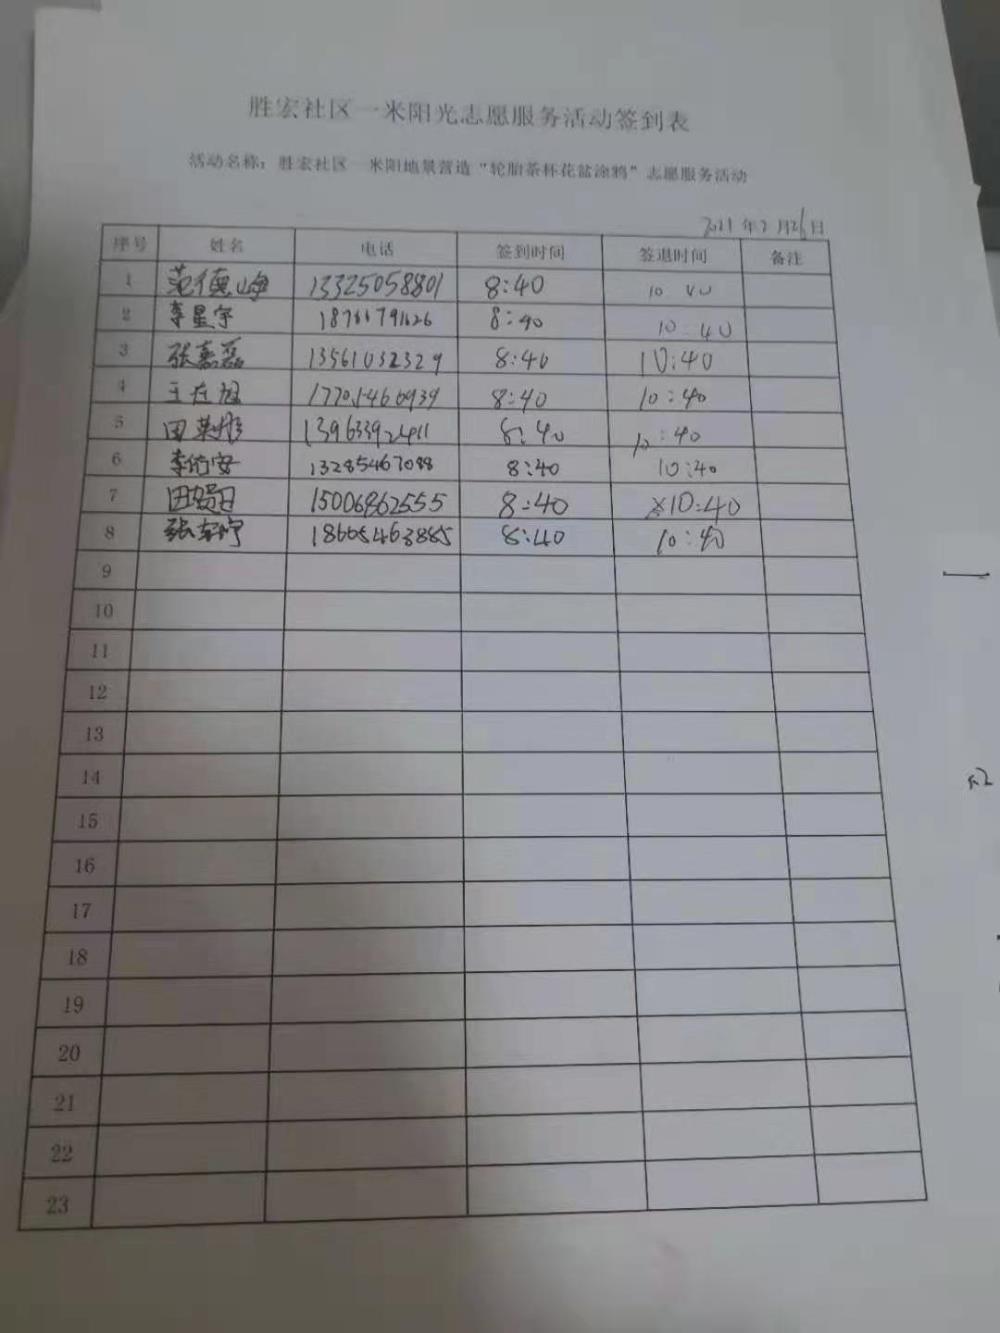 胜宏社区一米阳光志愿服务活动签到表
活动名称：胜宏社区一米阳地景营造“轮胎茶杯花盆涂鸦”志愿服务活动
2021年2月26日
序号 姓名 电话 签到时间 签退时间 备注
1 范德峰 13325058801 8:40 10
2 李星宇 8:40 10:40
3 张嘉磊 13561032329 8:40 10:40
4 8:40 10:40
5 田 8:40 10:40
6 李 13285467088 8:40 10:40
7 15006862555 8:40 10:40
8 张 18665463885 8:40 10:40
9
10
11
12
13
14
15
16
17
18
19
20
21
22
23